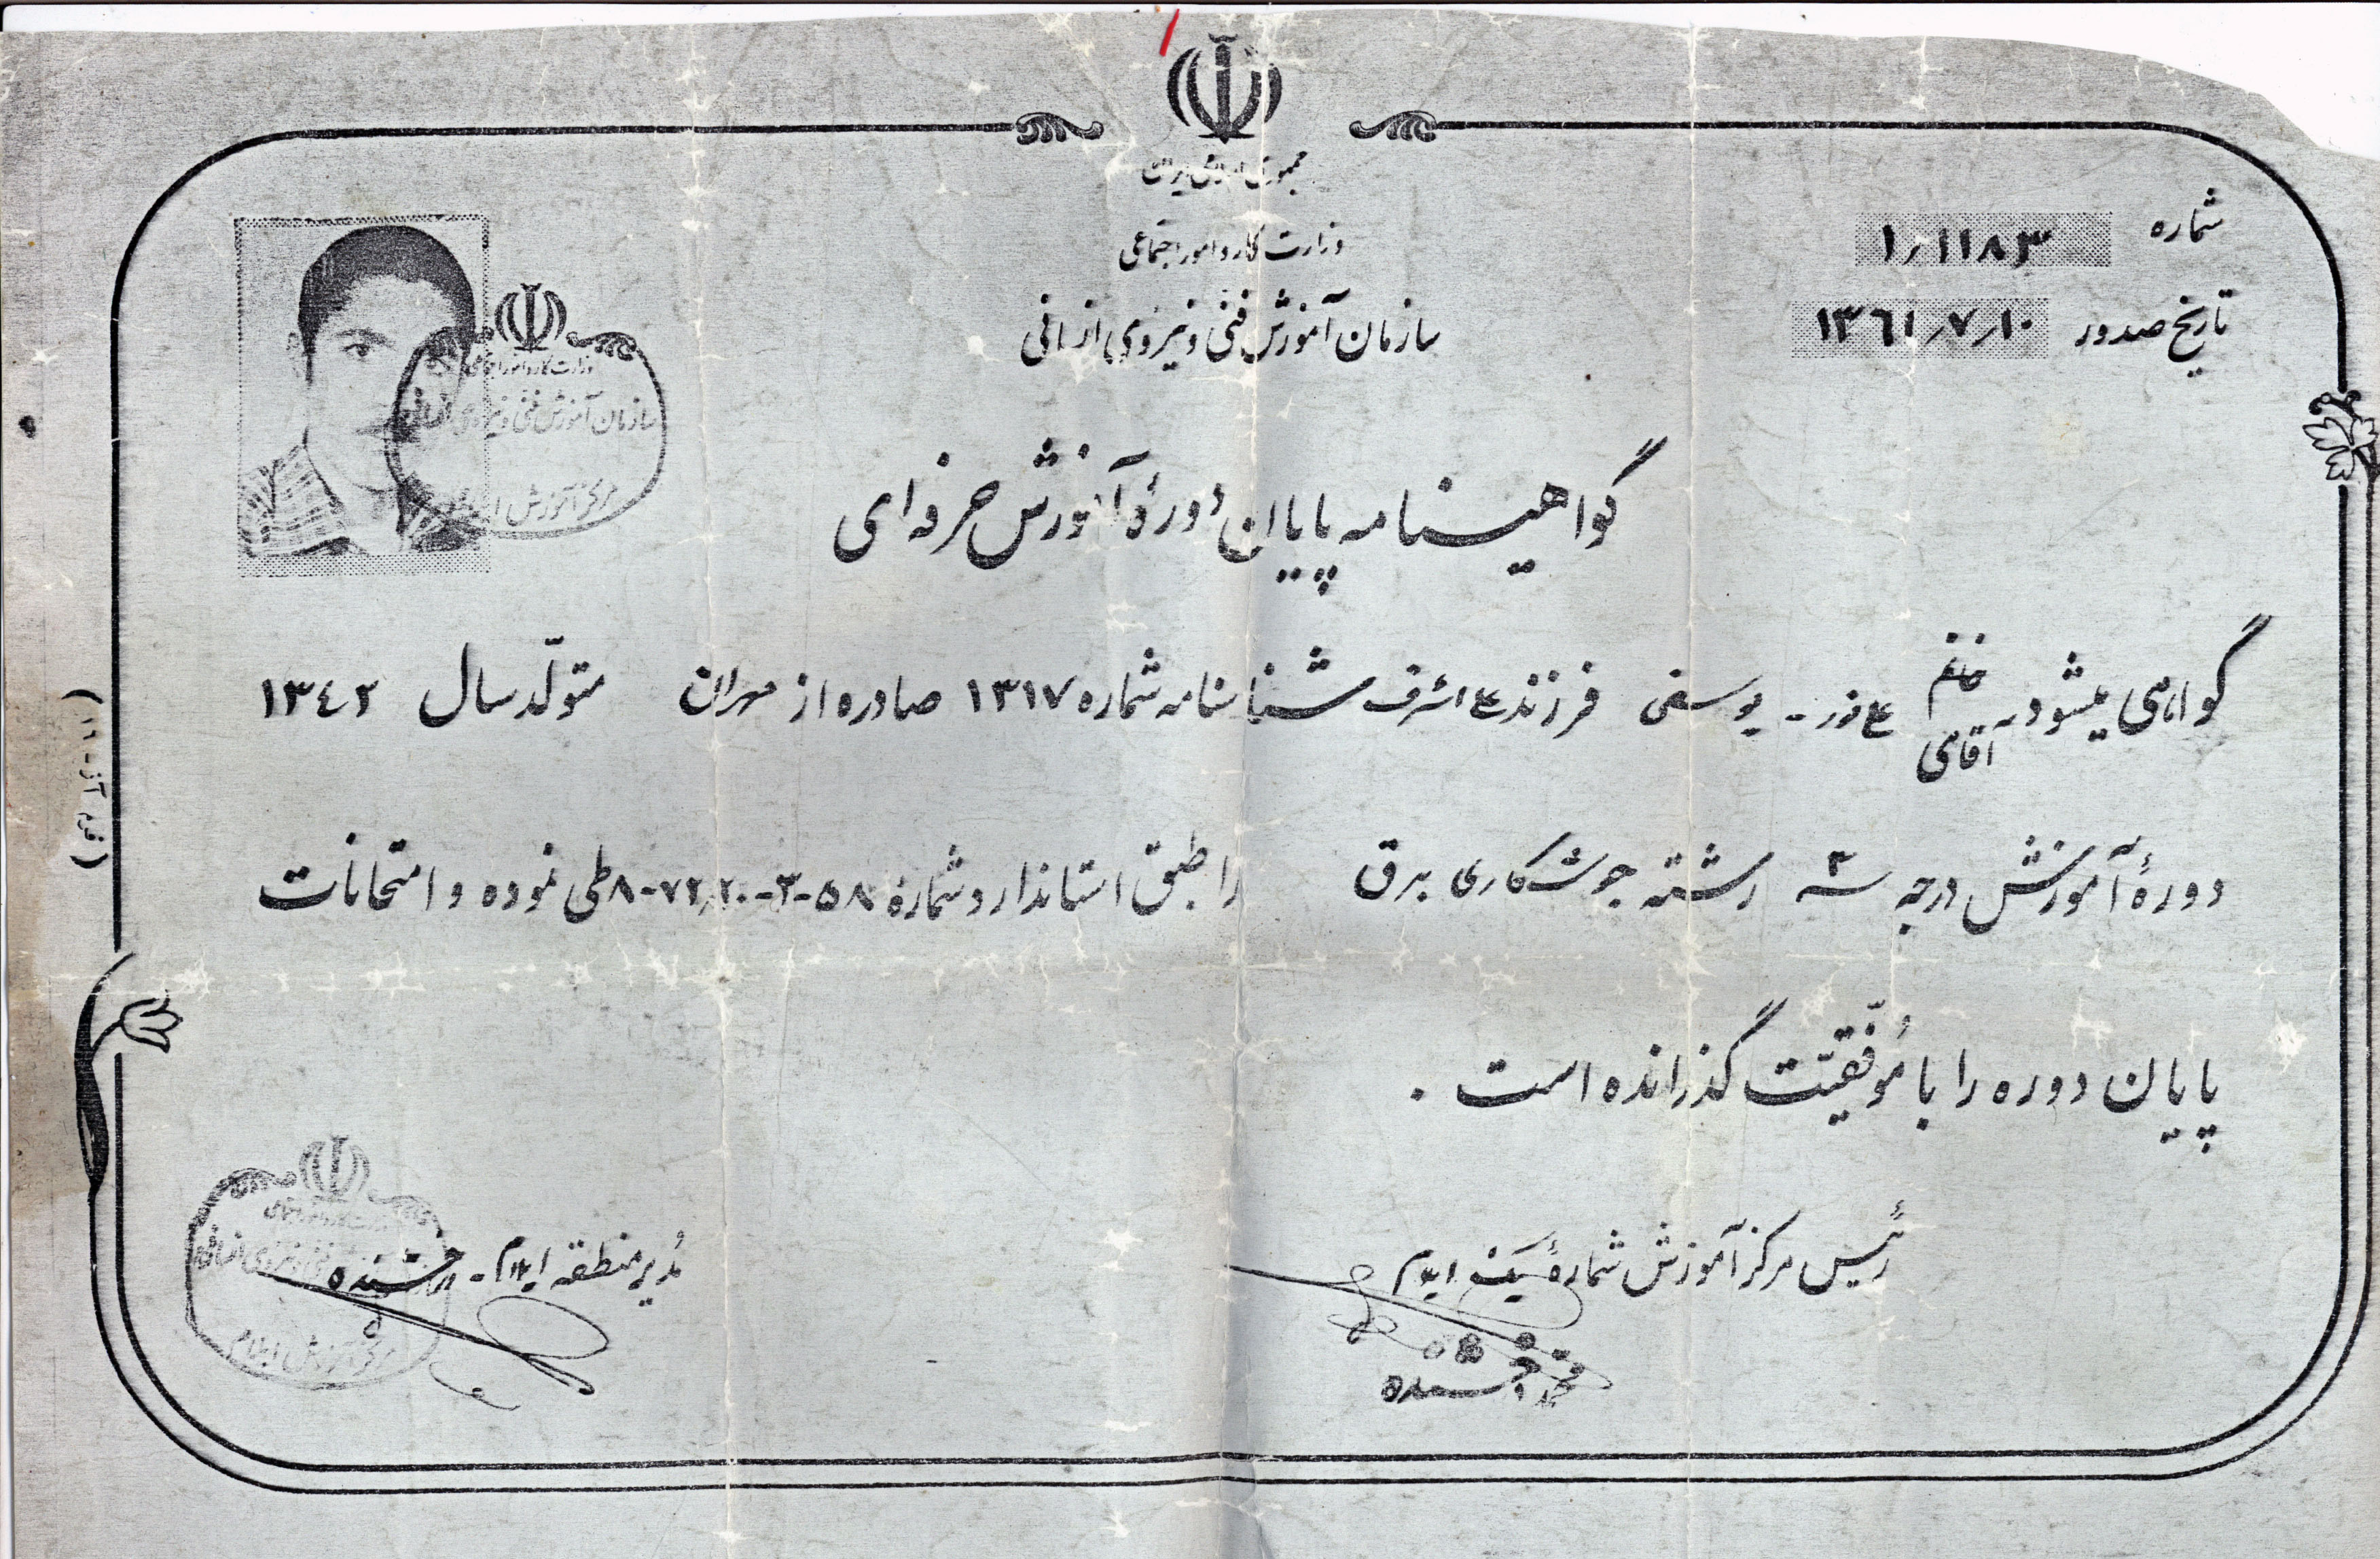 جمهوری اسلامی ایران
وزارت کار و امور اجتماعی
سازمان آموزش فنی و نیروی انسانی
شماره ۱٫۱۱۸۳
تاریخ صدور ۱۳۶۱٫۷٫۱۰
وزارت کار و امور اجتماعی
سازمان آموزش فنی و نیروی انسانی
مرکز آموزش ایلام
گواهینامه پایان دورهٔ آموزش حرفه‌ای
گواهی میشود خانم آقای علی نور - یوسفی فرزند علی اشرف شناسنامه شماره ۱۳۱۷ صادره از مهران متولّد سال ۱۳۴۲
دورهٔ آموزش درجه ۳ سه رشته جوشکاری برق را طبق استاندارد شمارهٔ ۸-۷۲٫۲۰-۳-۵۸ طی نموده و امتحانات
پایان دوره را با مُوفّقیّت گذرانده است .
رئیس مرکز آموزش شمارهٔ یک ایلام
مُدیر منطقه ایلام - درخشنده
مرکز آموزش ایلام